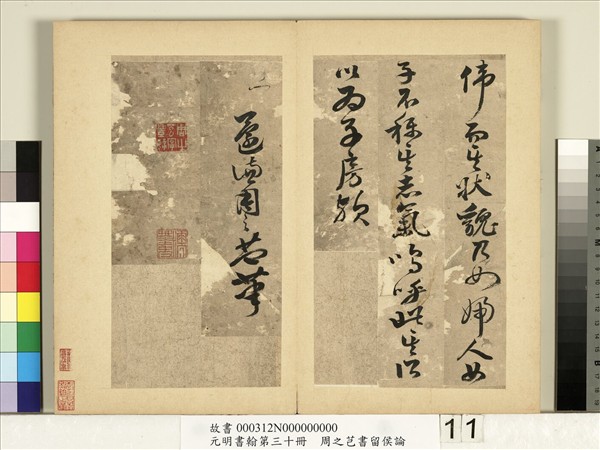 偉而其狀貌乃如婦人女
子不稱其志氣嗚呼此其所
以為子房歟
周之芑
故書 000312N000000000
元明書翰第三十冊 周之芑書留侯論
11